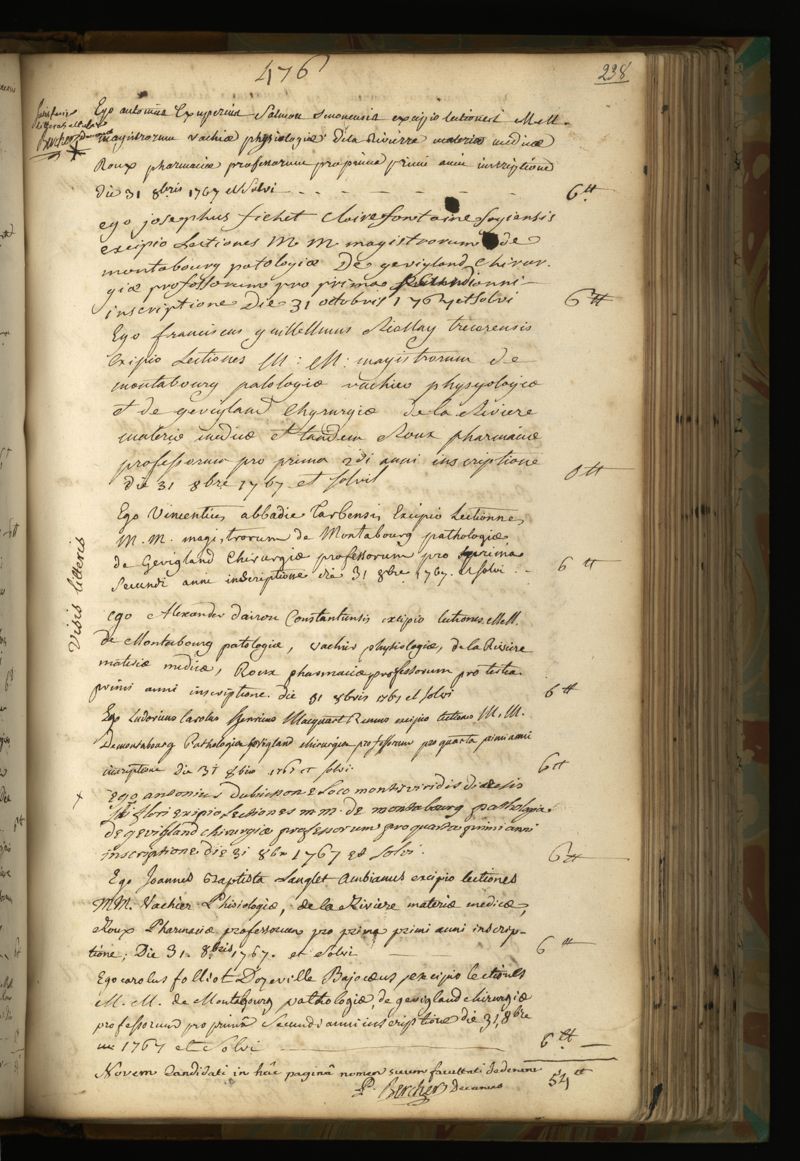 476
238
Ego antonius Exuperius Salmon excipio lectiones M.M.
magistrorum vachiæ physiologiæ Dela Rivierre materiæ medicæ
Roux pharmaciæ professorum pro prima primi anni inscriptione
die 31 8bris 1767 et Solvi - - - - - - 6tt
Bercher decanus
ego josephus fichet Clairefontaine Sagiensis
excipio Lectiones M M magistrorum de
montabourg patologiæ De gevigland Chirur-
giæ professorum pro prima anni
inscriptione Die 31 octobris 1767 et solvi 6tt
Ego franciscus guillelmus Riollay trecorensis
Exipio Lectiones M: M: magistrorum de
montabourg patologiæ vachier physyologiæ
et de gevigland Chyrurgiæ de la Riviere
materiæ medicæ et tandem Roux pharmaciæ
professorum pro prima 2di anni inscriptione
die 31 8bre 1767 et solvit 6tt
Visis litteris
Ego Vincentius abbadie Tarbensis Excipio Lectionnes
M. M. magistrorum de Montabourg pathologiæ
de Gevigland Chirurgiæ professorum pro prima
Secundi anni inscriptione die 31 8bre 1767. et solvi - - 6tt
ego Alexander dairou Constantiensis excipio lectiones MM.
de Montabourg patologiæ, vachier physiologiæ, de la Riviere
materiæ medicæ, Roux pharmaciæ professorum pro tertia
primi anni inscriptione. die 31 8bris 1767 et solvi 6tt
Ego Ludovicus Carolus henricus Macquart Remus excipio lectiones M. M.
Demontabourg Pathologiæ gevigland chirurgiæ professorum pro quarta primi anni
inscriptione die 31 8bris 1767 et solvi. 6tt
Ego antonius Dubuisson e Loco montisviridis diocesis
Sti flori excipio Lectiones m m. de montabourg pathologiæ
de gevigland chirurgiæ professorum pro quarta primi anni
inscriptione die 31 8bre 1767 et solvi. 6tt
Ego Joannes Baptista Langlet Ambianus excipio lectiones
MM. Vachier Phisiologiæ, de la Riviere materiæ medicæ,
Roux Pharmaciæ professorum pro prima primi anni inscrip-
tione, Die 31. 8bris 1767. et Solvi 6tt
Ego carolus folliot Bajocæus excipio lectiones
M. M. de Montabourg pathologiæ, de gevigland chirurgiæ
professorum pro primâ Secundi anni inscriptione die 31, 8bre
1767 et Solvi 6tt
Novem Candidati in hâc paginâ nomen suum facultati dederunt 54tt
P. Bercher decanus